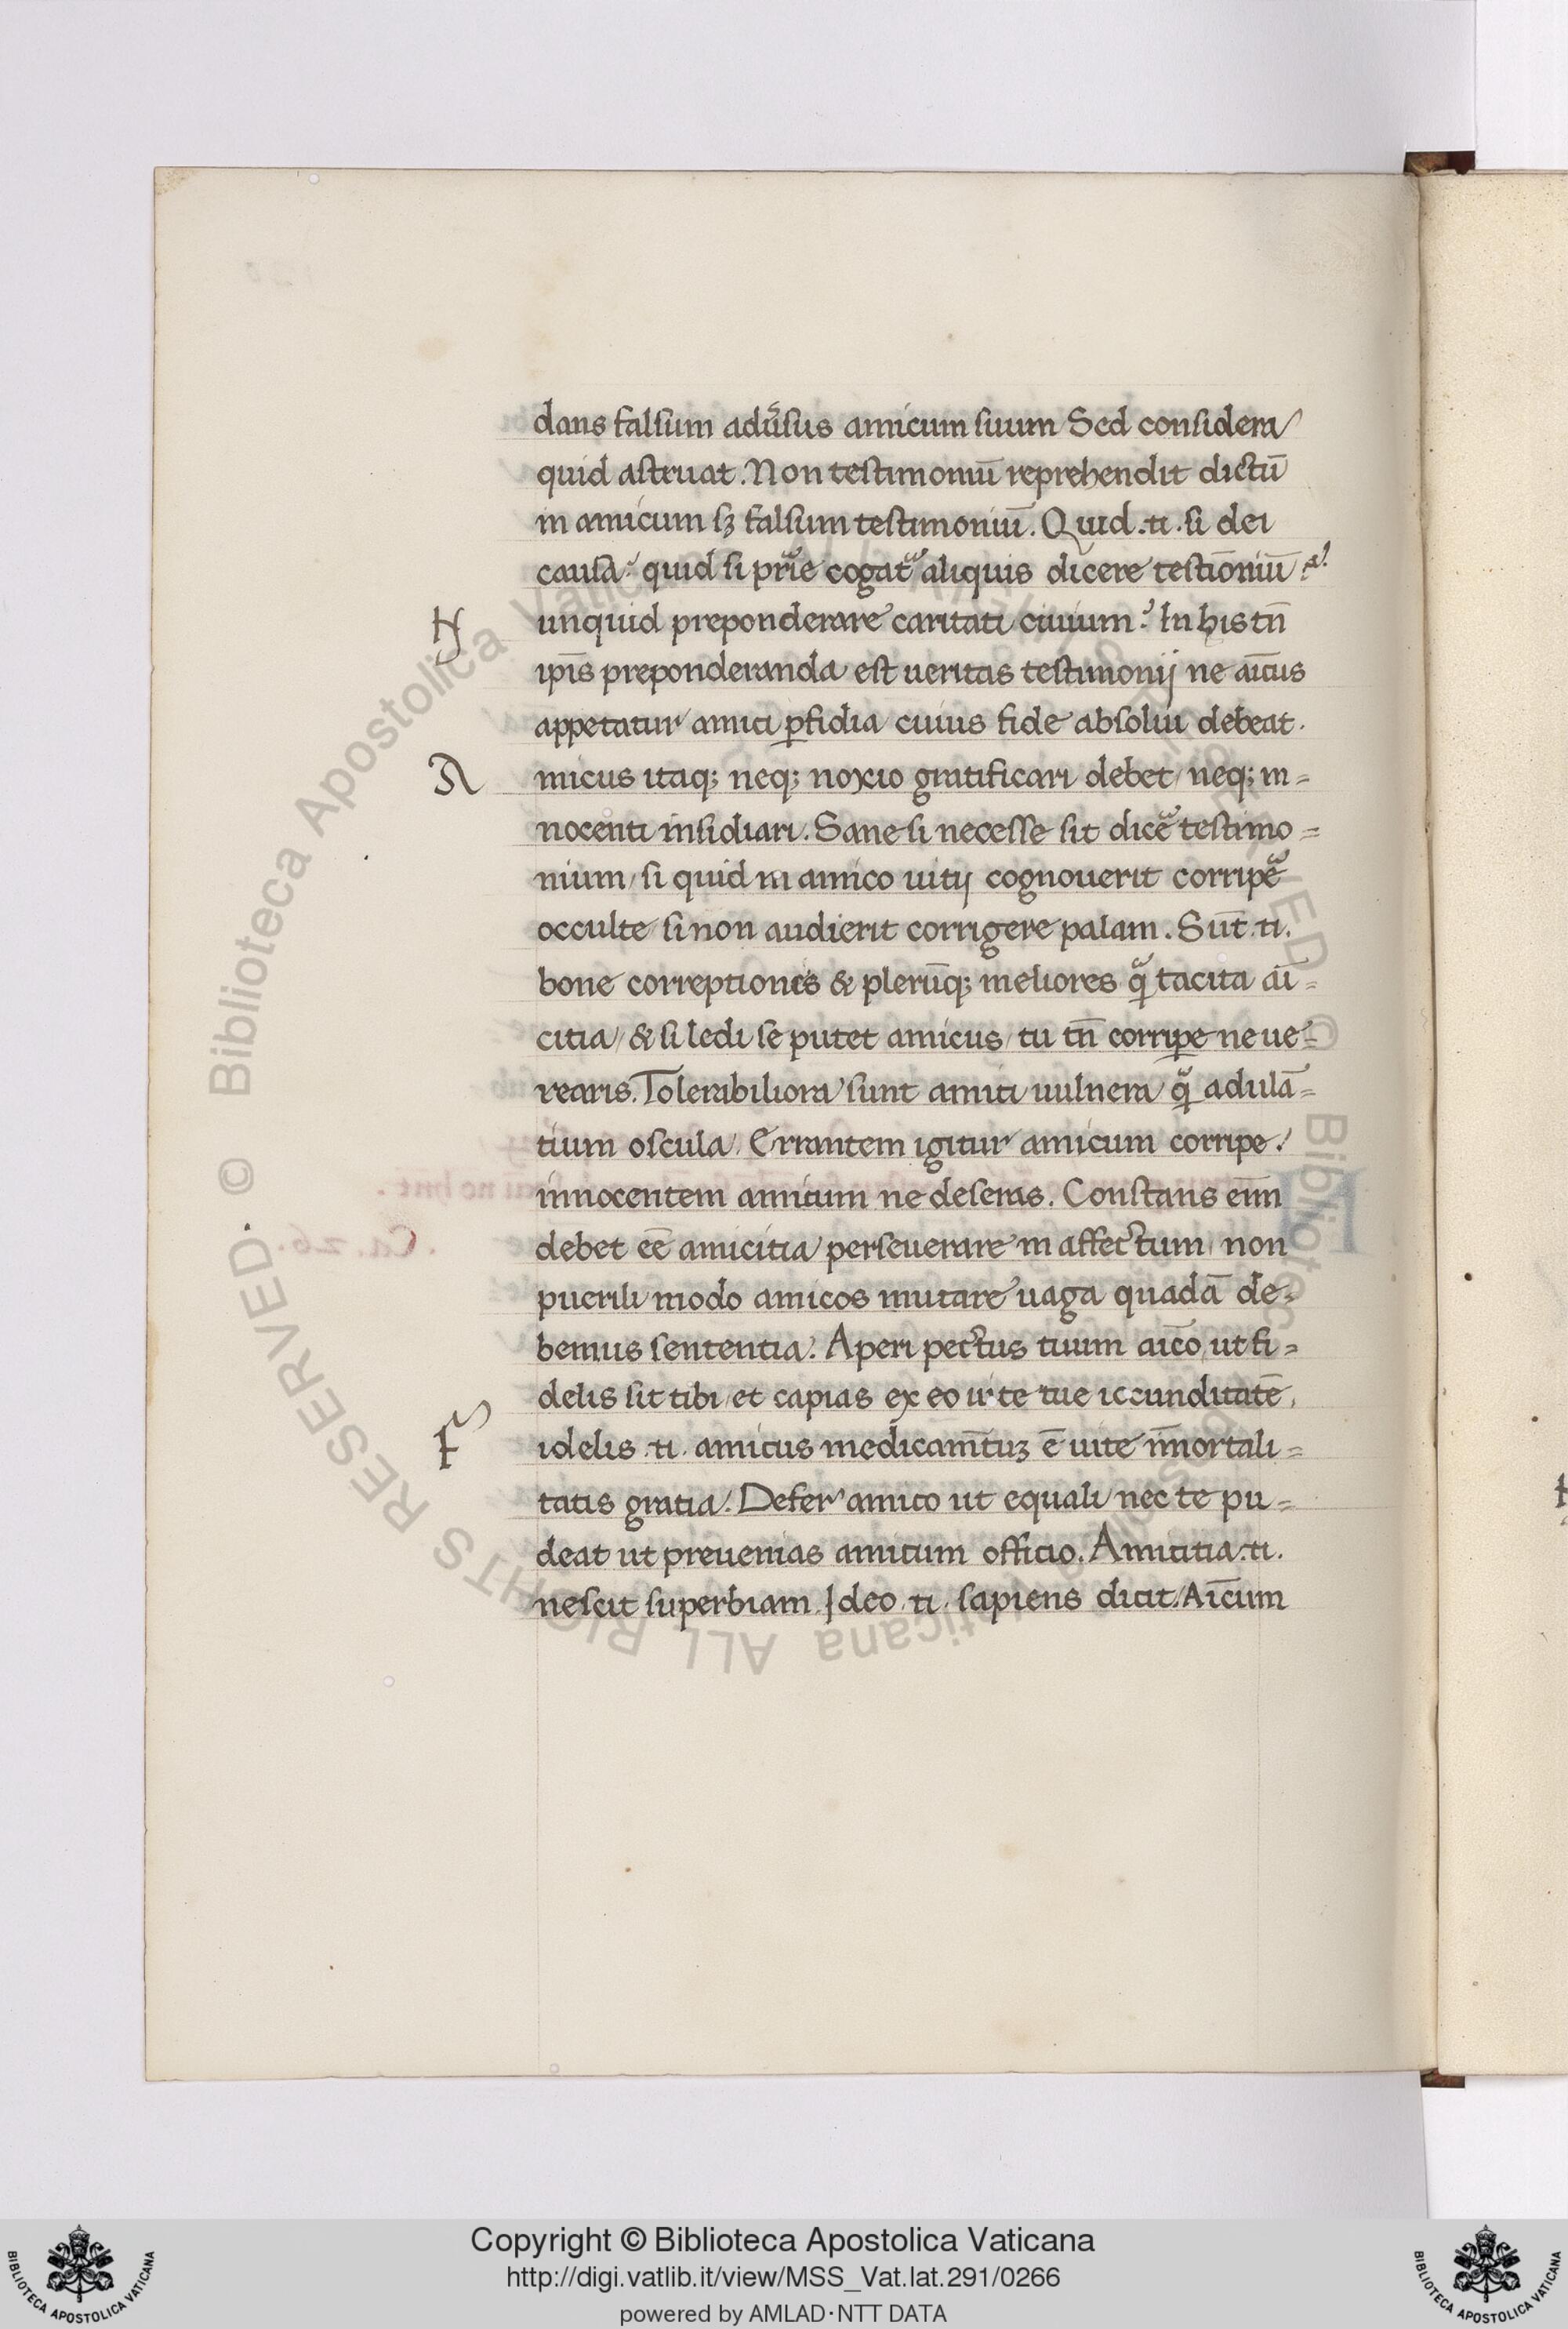 dans falsum adũsus amicum suum Sed considera
quid astruat. Non testimoniũ reprehendit dictũ
in amicum sꝫ falsum testimoniũ. Quid .n. si dei
causã? quid si prĩe cogat̃ aliquis dicere testĩoniũ
H unquid preponderare caritati ciuium? In his tñ
ip̃is preponderanda est ueritas testimonij ne aĩcus
appetatur amici ꝑfidia cuius fide absolui debeat.
A micus itaq; neq; noxio gratificari debet / neq; in=
nocenti insidiari. Sane si necesse sit dicẽ testimo=
nium / si quid in amico uitij cognouerit corripẽ
occulte / si non audierit corrigere palam. Sũt .n.
bone correptiones & plerũq; meliores q̃ tacita aĩ=
citia / & si ledi se putet amicus / tu tñ corripe ne ue=
rearis. Tolerabiliora sunt amici uulnera q̃ adulã=
tium oscula. Errantem igitur amicum corripe /
innocentem amicum ne deseras. Constans eĩm
debet eẽ amicitia perseuerare in affectum / non
puerili modo amicos mutare uaga quadã de=
bemus sententia. Aperi pectus tuum aĩco ut fi=
delis sit tibi / et capias ex eo uite tue iocunditatẽ.
F idelis .n. amicus medicam̃tuꝫ ẽ uite ĩmortali=
tatis gratia. Defer amico ut equali nec te pu=
deat ut preuenias amicum officio. Amicitia .n.
nescit superbiam. Ideo .n. sapiens dicit. Aĩcum
Copyright © Biblioteca Apostolica Vaticana
http://digi.vatlib.it/view/MSS_Vat.lat.291/0266
powered by AMLAD·NTT DATA